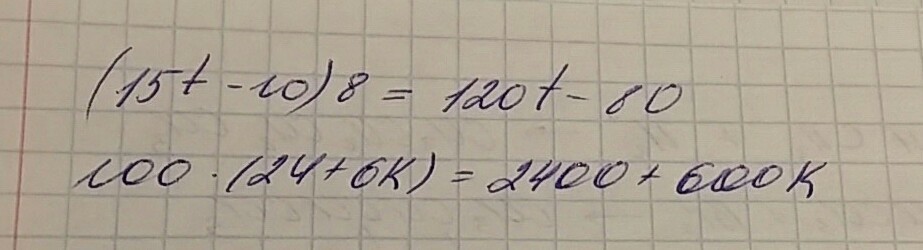 (15t - 10) 8 = 120t - 80
100 · (24 + 6K) = 2400 + 600K